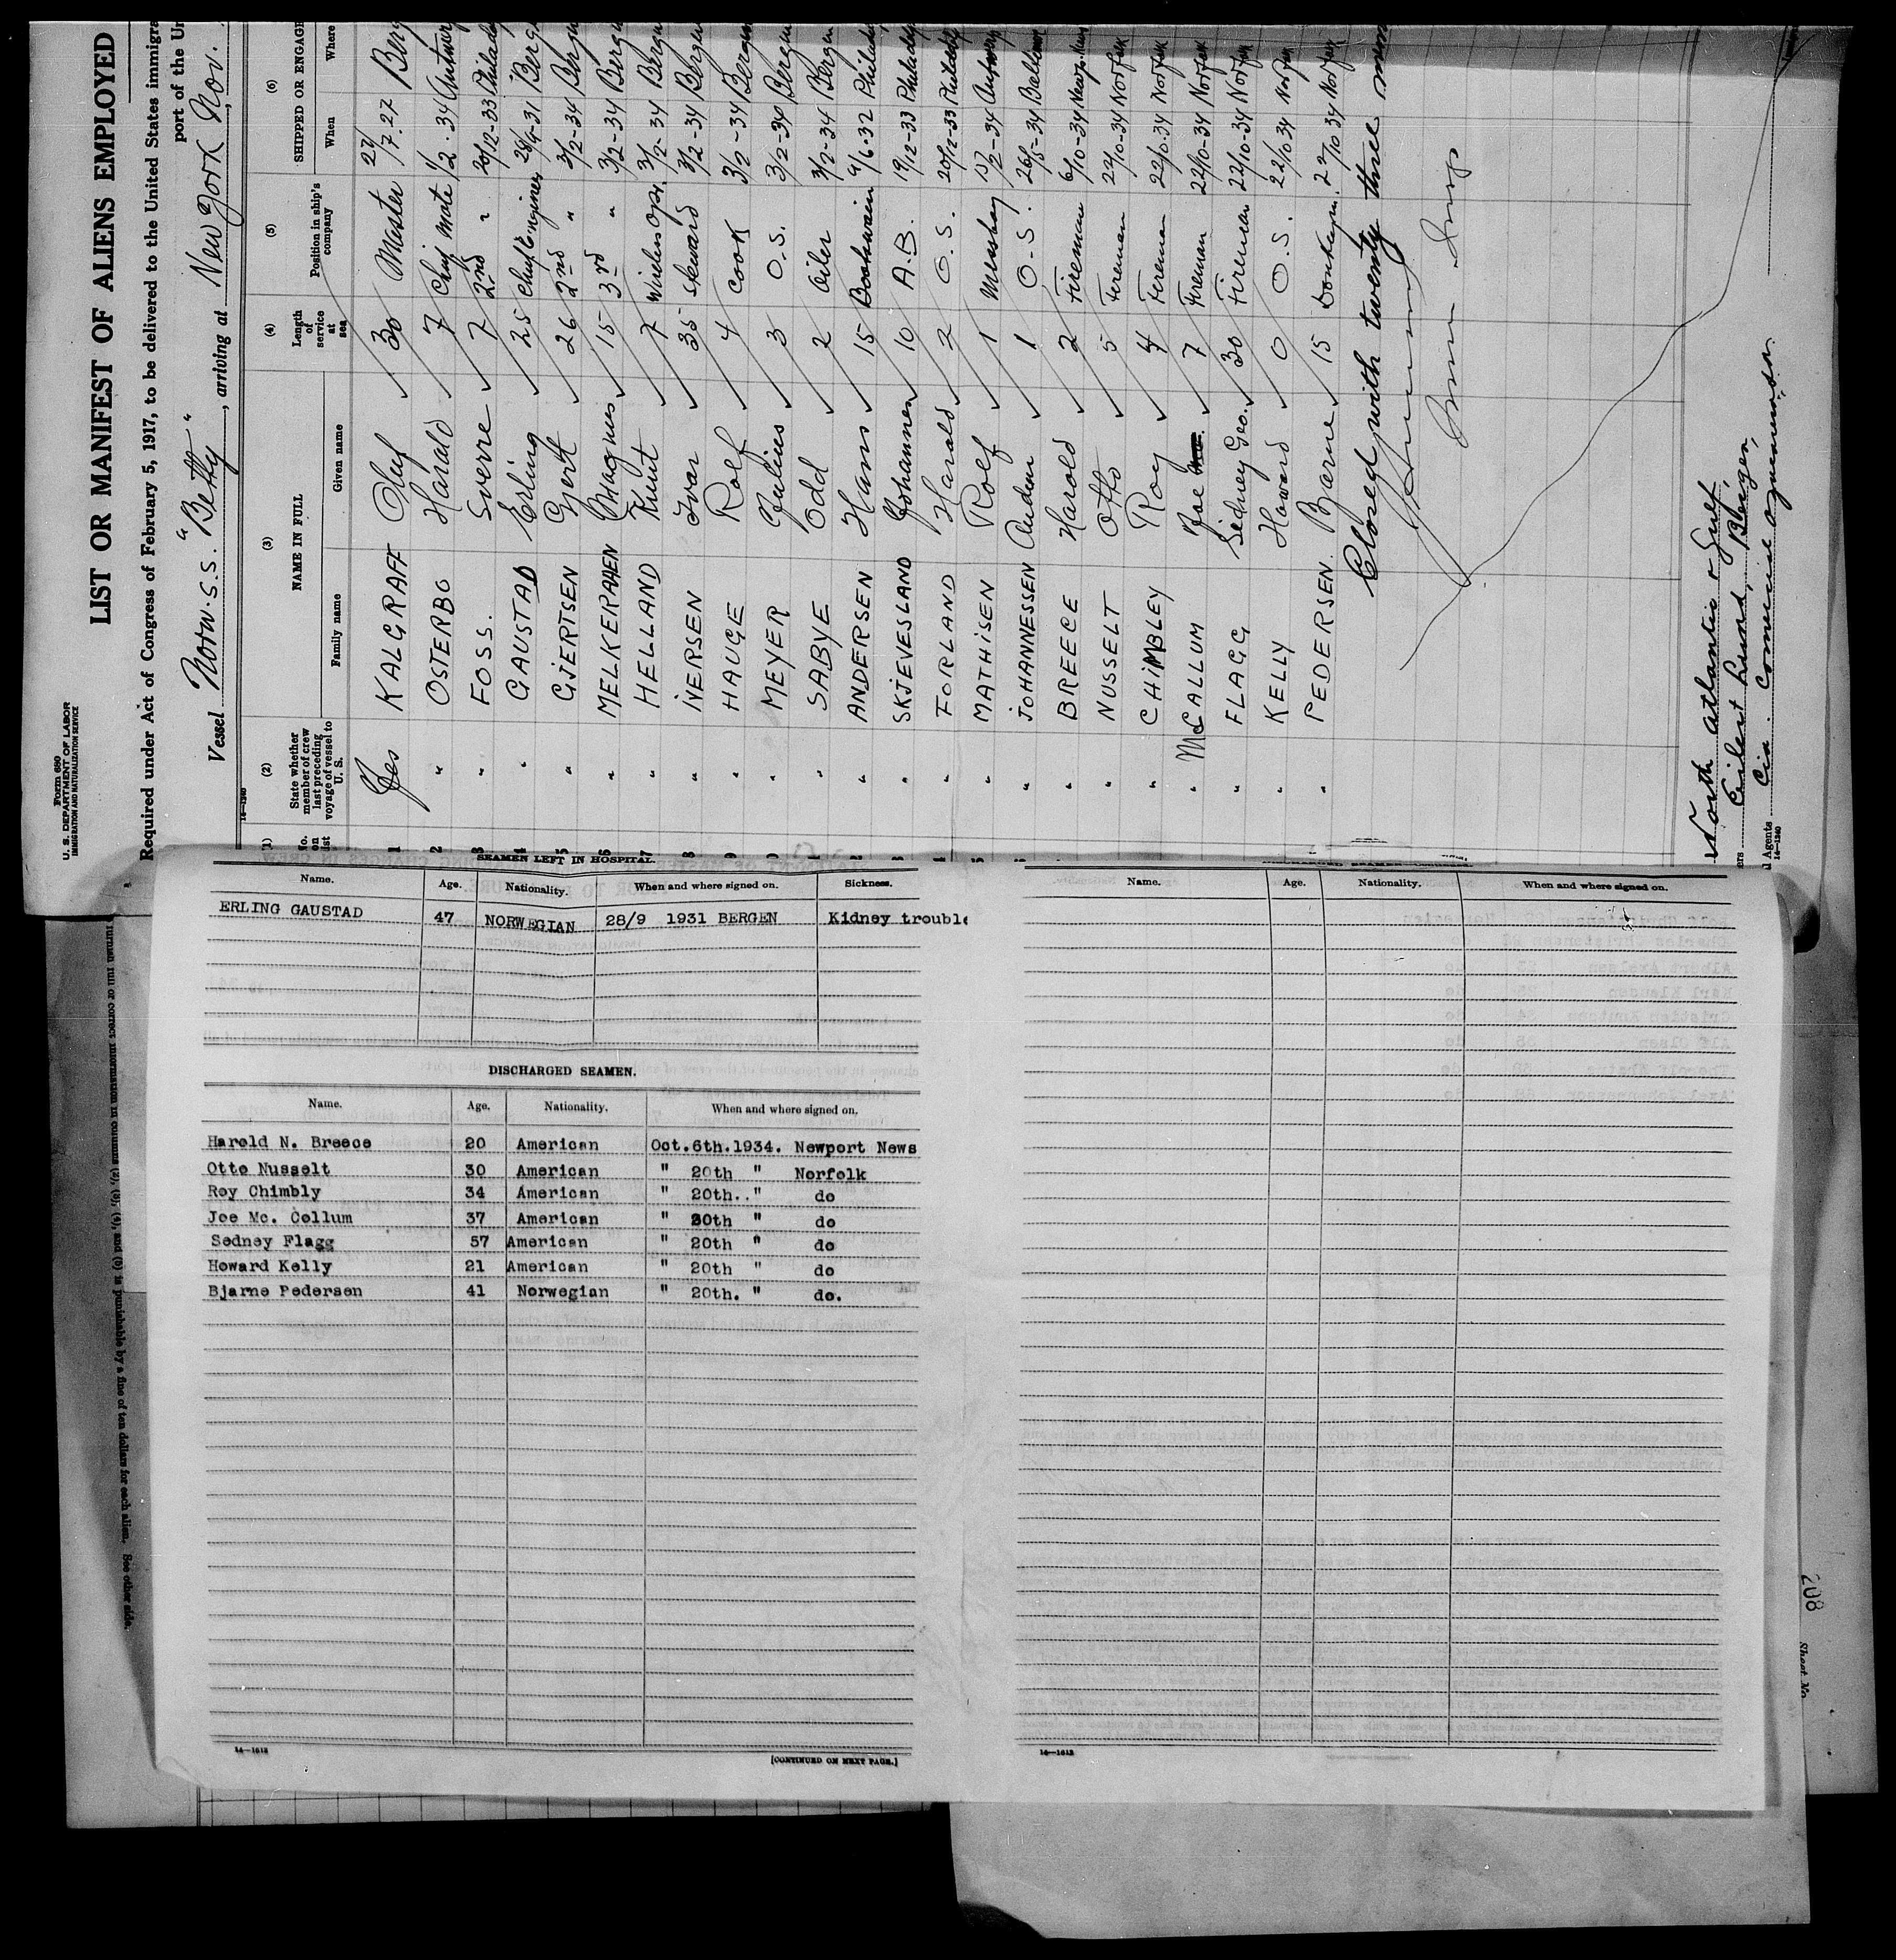 Form 680
U. S. DEPARTMENT OF LABOR
IMMIGRATION AND NATURALIZATION SERVICE
LIST OR MANIFEST OF ALIENS EMPLOYED
Required under Act of Congress of February 5, 1917, to be delivered to the United States immigra
port of the Un
Vessel Norw. S.S. "Betty", arriving at New York, Nov.
14—1240
(1) (2) (3) (4) (5) (6)
No. on list State whether member of crew last preceding voyage of vessel to U. S. NAME IN FULL Length of service at sea Position in ship's company SHIPPED OR ENGAGE
Family name Given name When Where
1 Yes KALGRAFF Oluf 30 Master 27/7.27 Berg
2 " OSTERBO Harald 7 Chief mate 1/2-34 Antwerp
3 " FOSS. Sverre 7 2nd " 20/12-33 Philade
4 " GAUSTAD Erling 25 Chief Engineer 28/9-31 Berg
5 " GJERTSEN Gjert 26 2nd " 3/2-34 Bergen
6 " MELKERAAEN Magnus 15 3rd " 3/2-34 Bergen
7 " HELLAND Knut 7 Wireless Opr. 3/2-34 Bergen
8 " IVERSEN Ivar 35 Steward 3/2-34 Bergen
9 " HAUGE Rolf 4 Cook 3/2-34 Bergen
0 " MEYER Julius 3 O.S. 3/2-34 Bergen
1 " SABYE Odd 2 Oiler 3/2-34 Bergen
2 " ANDERSEN Hans 15 Boatswain 9/6-32 Philade
3 " SKJEVESLAND Johannes 10 A.B. 19/12-33 Philadelp
4 " FORLAND Harald 2 O.S. 20/12-33 Philadelp
5 " MATHISEN Rolf 1 Messboy 15/2-34 Antwerp
6 " JOHANNESSEN Audun 1 O.S. 26/5-34 Baltimor
" BREECE Harold 2 Fireman 6/10-34 Newp. News
" NUSSELT Otto 5 Fireman 22/10-34 Norfolk
" CHIMBLEY Roy 4 Fireman 22/10-34 Norfolk
" McCALLUM Joe 7 Fireman 22/10-34 Norfolk
" FLAGG Sidney Geo. 30 Fireman 22/10-34 Norfolk
" KELLY Howard 0 O.S. 22/10 34 Norfolk
" PEDERSEN Bjarne 15 Donkeym. 22/10 34 Norfolk
Closed with twenty three
North Atlantic & Gulf
Eilert Lund, Bergen,
l Agents
14—1240
SEAMEN LEFT IN HOSPITAL.
Name. Age. Nationality. When and where signed on. Sickness.
ERLING GAUSTAD 47 NORWEGIAN 28/9 1931 BERGEN Kidney trouble
DISCHARGED SEAMEN.
Name. Age. Nationality. When and where signed on.
Harold N. Breece 20 American Oct.6th.1934. Newport News
Otto Nusselt 30 American " 20th " Norfolk
Roy Chimbly 34 American " 20th.." do
Joe Mc. Collum 37 American " 20th " do
Sedney Flagg 57 American " 20th " do
Howard Kelly 21 American " 20th " do
Bjarne Pedersen 41 Norwegian " 20th. " do.
14—1612
[CONTINUED ON NEXT PAGE.]
Name. Age. Nationality. When and where signed on.
14—1612
furnish full or correct information in columns (2), (3), (4), and (6) is punishable by a fine of ten dollars for each alien. See other side.
208
Sheet No